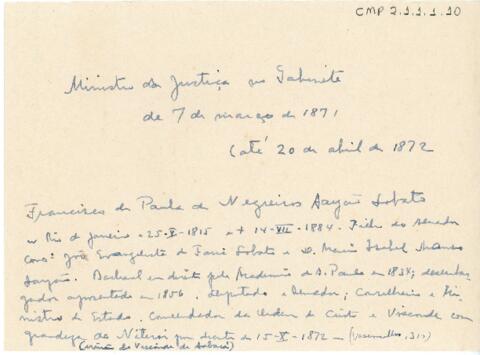 CMP 2.1.1.1.10
Ministro da Justiça no Gabinete
de 7 de março de 1871
(até 20 de abril de 1872
Francisco de Paula de Negreiros Sayão Lobato
n Rio de Janeiro a 25-V-1815 e + 14-VII-1884. Filho do Senador
Cons: João Evangelista de Faria Lobato e D. Maria Isabel Manso
Sayão. Bacharel em direito pela Academia de S. Paulo em 1834; desembar-
gador aposentado em 1856. deputado e senador; Conselheiro e Mi-
nistro de Estado. Comendador da Ordem de Cristo e Visconde com
grandeza de Niterói por decreto de 15-X-1872 — (Vasconcellos, 313)
(irmão do Visconde de Sabará)